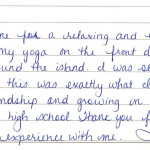 me for a relaxing and
my yoga on the front d
ound the island. I was se
this was exactly what
ndship and growing in
high school. Thank you f
experience with me.